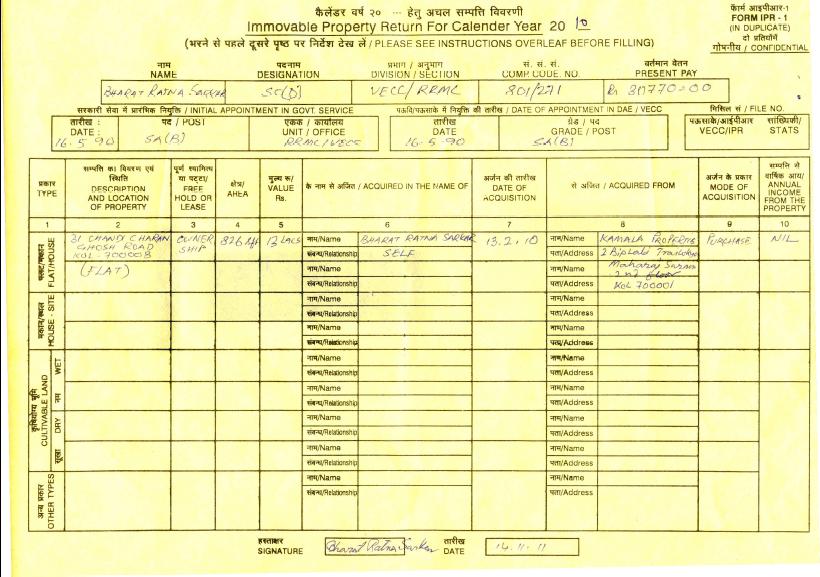 कैलेंडर वर्ष २० --- हेतु अचल सम्पत्ति विवरणी
Immovable Property Return For Calender Year 20 10
(भरने से पहले दूसरे पृष्ठ पर निर्देश देख लें / PLEASE SEE INSTRUCTIONS OVERLEAF BEFORE FILLING)
फॉर्म आइपीआर-1
FORM IPR - 1
(IN DUPLICATE)
दो प्रतियों में
गोपनीय / CONFIDENTIAL
नाम पदनाम प्रभाग / अनुभाग सं. सं. सं. वर्तमान वेतन
NAME DESIGNATION DIVISION / SECTION COMP. CODE. NO. PRESENT PAY
BHARAT RATNA SARKAR SO(D) VECC/RRMC 801/271
सरकारी सेवा में प्रारंभिक नियुक्ति / INITIAL APPOINTMENT IN GOVT. SERVICE
पऊवि/पऊसाके में नियुक्ति की तारीख / DATE OF APPOINTMENT IN DAE / VECC
मिसिल सं / FILE NO.
तारीख : पद / POST एकक / कार्यालय तारीख ग्रेड / पद पऊसाके/आईपीआर सांख्यिकी/
DATE : UNIT / OFFICE DATE GRADE / POST VECC/IPR STATS
16.5.90 SA(B) RRMC/VECC 16.5.90 SA(B)
प्रकार
TYPE
सम्पत्ति का विवरण एवं
स्थिति
DESCRIPTION
AND LOCATION
OF PROPERTY
पूर्ण स्वामित्व
या पट्टा/
FREE
HOLD OR
LEASE
क्षेत्र/
AREA
मूल्य रू/
VALUE
Rs.
के नाम से अर्जित / ACQUIRED IN THE NAME OF
अर्जन की तारीख
DATE OF
ACQUISITION
से अर्जित / ACQUIRED FROM
अर्जन के प्रकार
MODE OF
ACQUISITION
सम्पत्ति से
वार्षिक आय/
ANNUAL
INCOME
FROM THE
PROPERTY
1 2 3 4 5 6 7 8 9 10
फ्लैट/मकान
FLAT/HOUSE
31 CHANDI CHARAN
GHOSH ROAD
KOL-700008
(FLAT)
OWNER
SHIP
826
LACS
नाम/Name BHARAT RATNA SARKAR
संबन्ध/Relationship SELF
13.2.10
नाम/Name KAMALA PROPERTIES
पता/Address 2 Biplabi
Maharaj Sarani
2nd floor
KOL 700001
PURCHASE
NIL
नाम/Name नाम/Name
संबन्ध/Relationship पता/Address
मकान/स्थल
HOUSE - SITE
नाम/Name नाम/Name
संबन्ध/Relationship पता/Address
नाम/Name नाम/Name
संबन्ध/Relationship पता/Address
कृषियोग्य भूमि
CULTIVABLE LAND
नम WET
नाम/Name नाम/Name
संबन्ध/Relationship पता/Address
नाम/Name नाम/Name
संबन्ध/Relationship पता/Address
सूखा DRY
नाम/Name नाम/Name
संबन्ध/Relationship पता/Address
नाम/Name नाम/Name
संबन्ध/Relationship पता/Address
अन्य प्रकार
OTHER TYPES
नाम/Name नाम/Name
संबन्ध/Relationship पता/Address
हस्ताक्षर तारीख
SIGNATURE Bharat Ratna Sarkar DATE 14.11.11